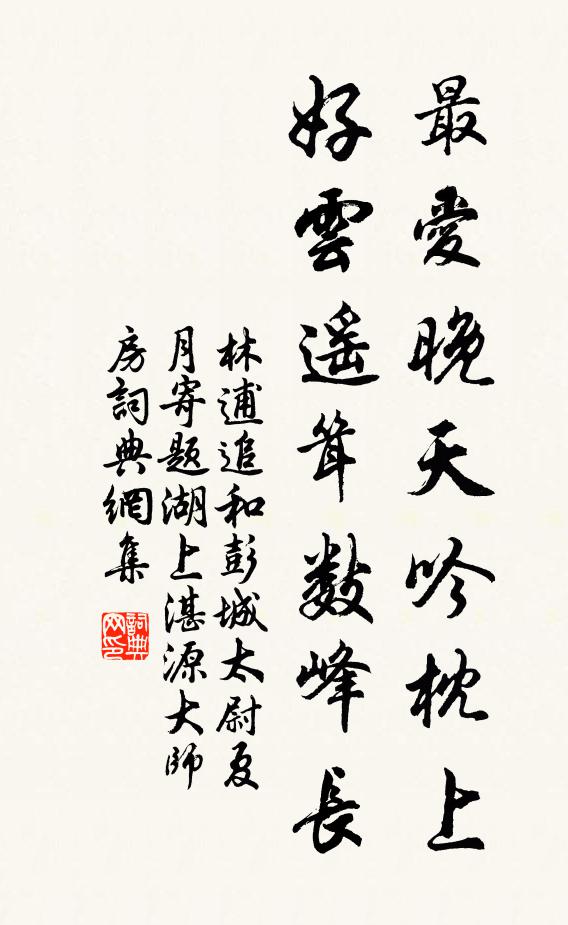 最愛晚天吟枕上
好雲遥聳數峰長
林逋追和彭城太尉夏
月寄題湖上湛源大師
房詞典網集
詞典
网印